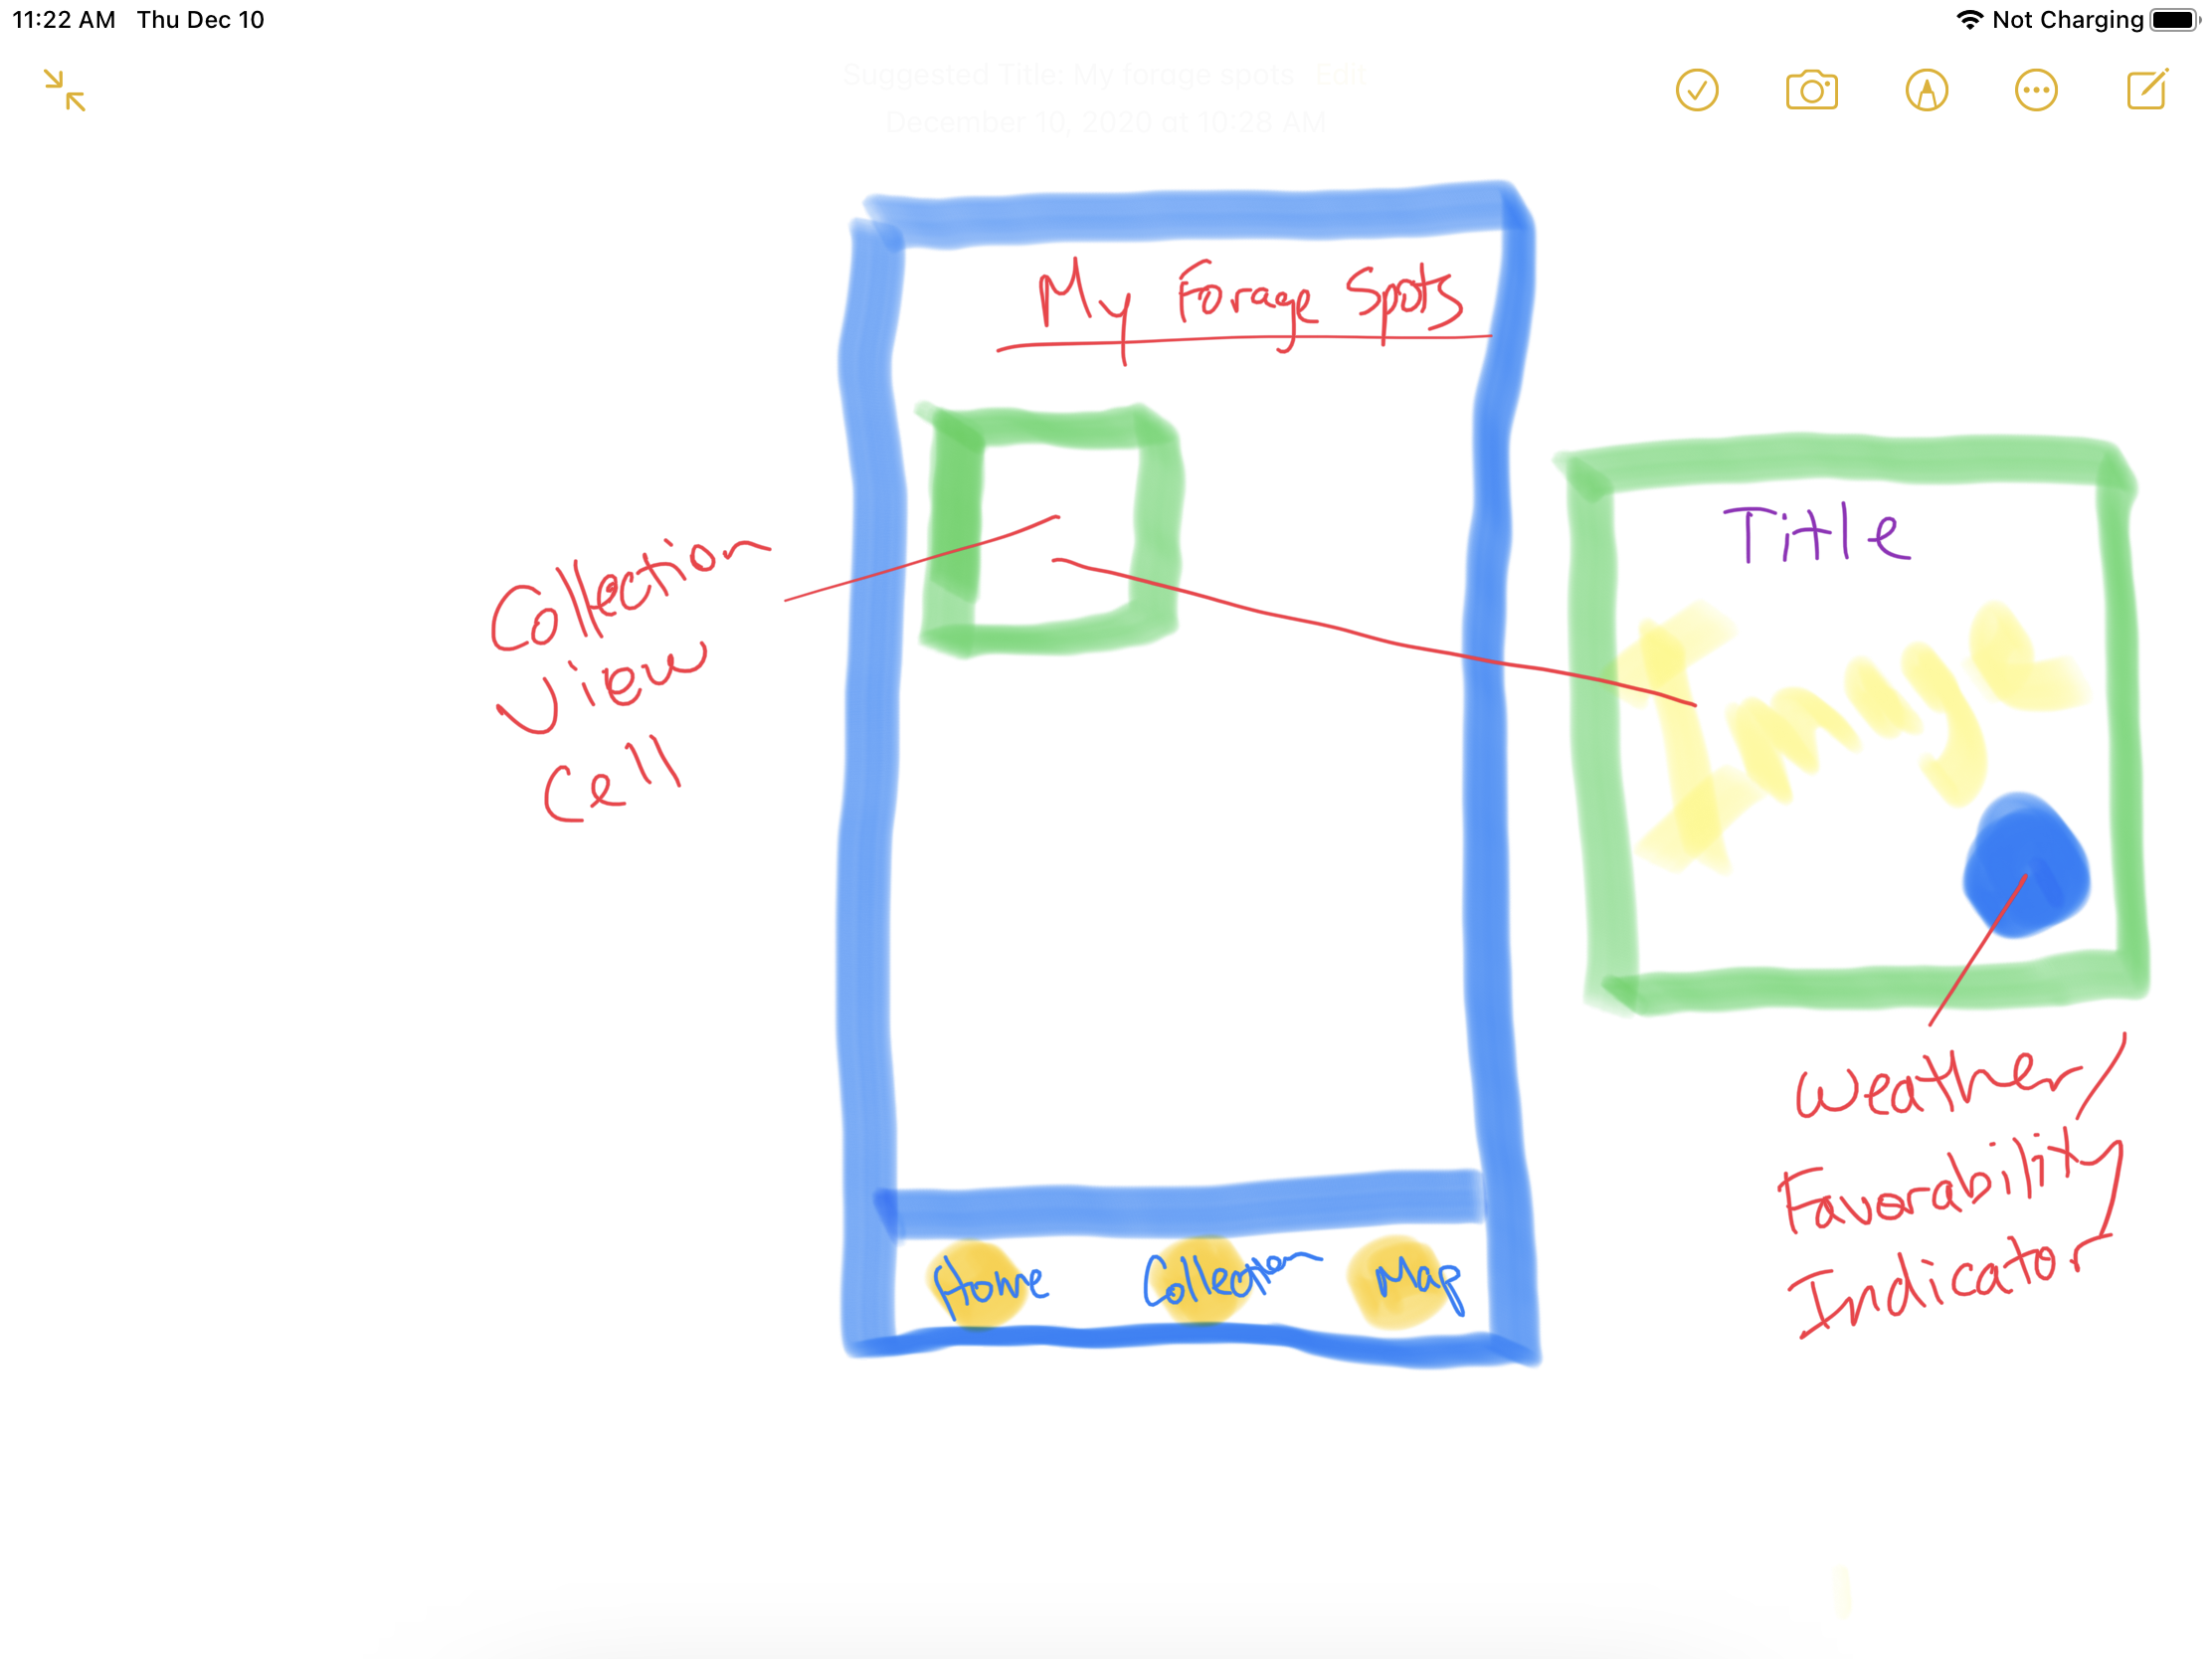 11:22 AM Thu Dec 10
Not Charging
Suggested Title: My forage spots Edit
December 10, 2020 at 10:28 AM
My Forage Spots
Collection
View
Cell
Title
Image
Weather/
Favorability
Indicator
Home Collection Map